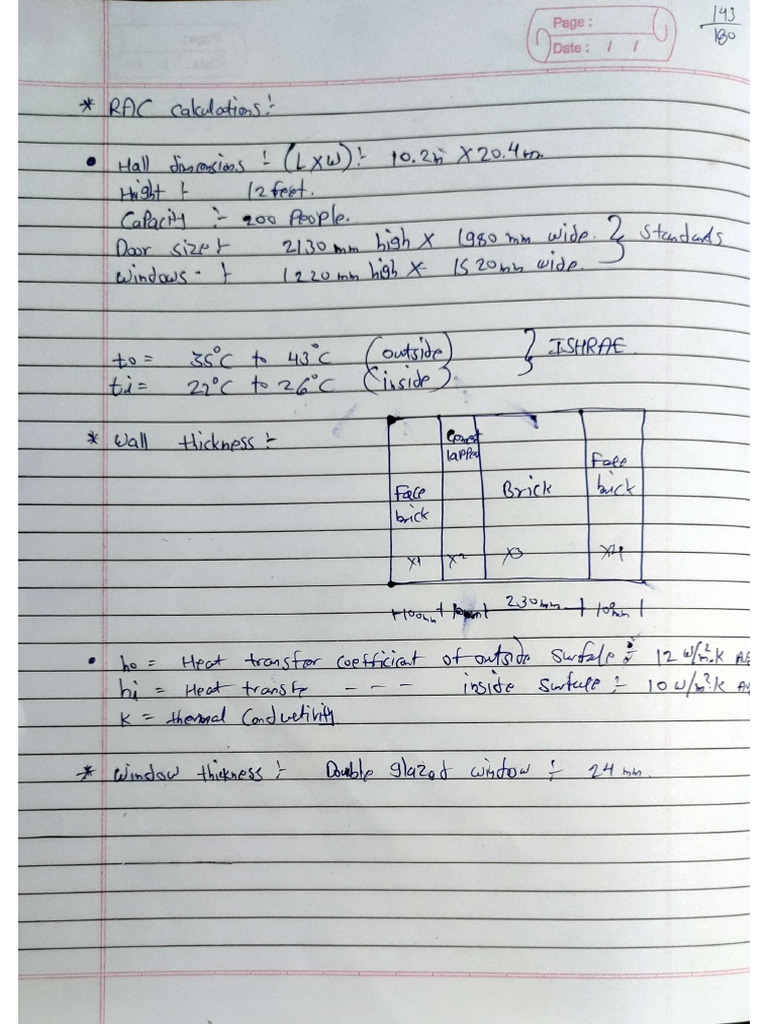 Page :
Date : / /
143
180
* RAC Calculations :-
• Hall dimensions :- (LXW) :- 10.2m X 20.4m
Height :- 12 feet.
Capacity :- 200 People.
Door size :- 2130 mm high X 1980 mm wide. } Standards
Windows - :- 1220 mm high X 1520 mm wide.
to = 35°C to 43°C (outside) } ISHRAE
ti = 22°C to 26°C (inside)
* Wall thickness :-
Face
brick
Brick
Face
brick
X1 X2 X3 X4
100mm 230mm
• ho = Heat transfer coefficient of outside surface :- 12 W/m².K
hi = Heat transfe --- inside surface :- 10 W/m².K
K = thermal Conductivity
* Window thickness :- Double glazed window :- 24 mm.